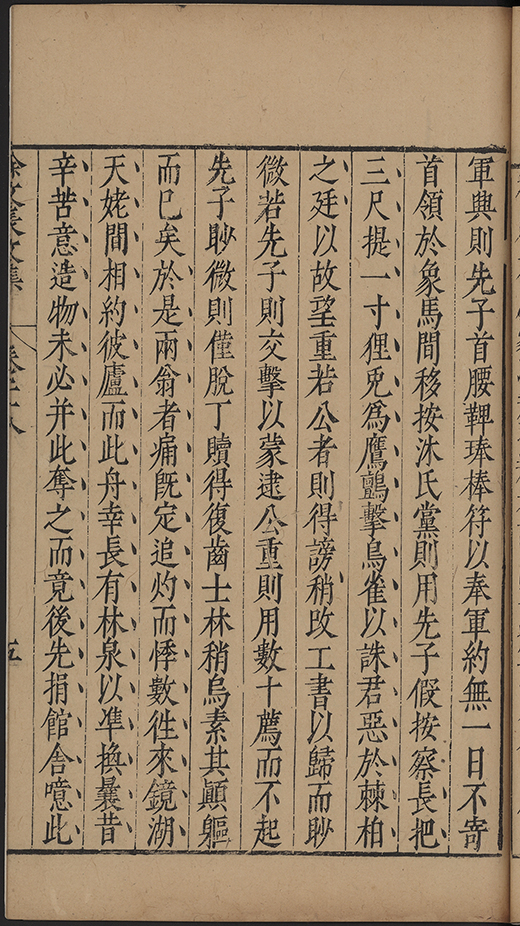 軍興則先子首腰鞞琫棒符以奉軍約無一日不寄
首領於象馬間移按沐氏黨則用先子假按察長把
三尺提一寸狸兎爲鷹鸇擊烏雀以誅君惡於棘柏
之廷以故望重若公者則得謗稍攺工書以歸而眇
微若先子則交擊以蒙逮公重則用數十薦而不起
先子眇微則僅脫丁贖得復齒士林稍烏素其顚軀
而已矣於是兩翁者痛旣定追灼而悸數徃來鏡湖
天姥間相約彼廬而此舟幸長有林泉以凖換曩昔
辛苦意造物未必并此奪之而竟後先捐館舎噫此
徐文長文集
五